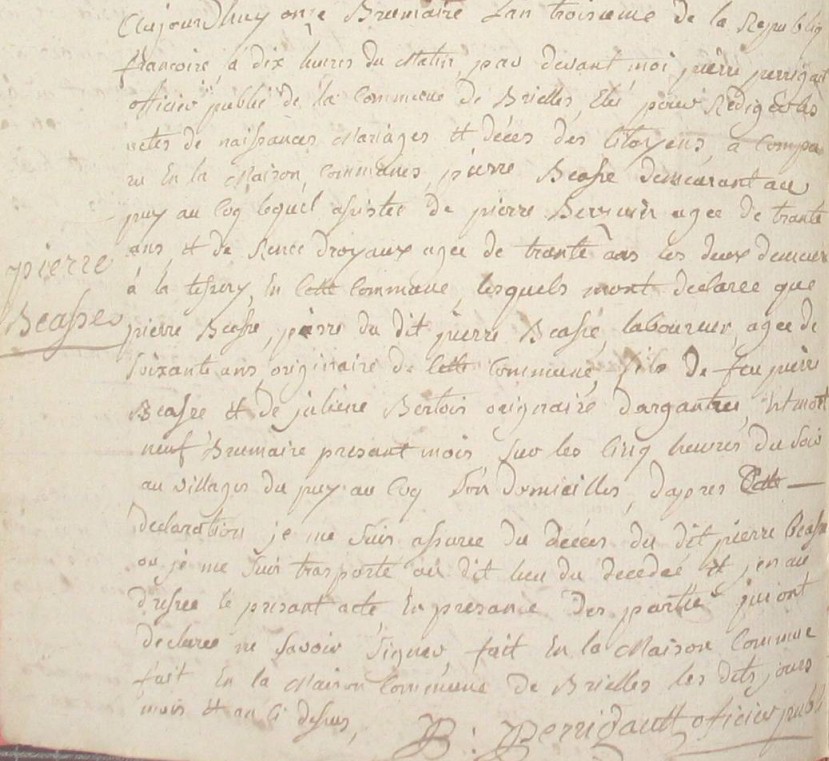 Aujourdhuy onze Brumaire Lan troisieme de la Republiq
francoise, a dix heures du Matin, par devant moi pierre perrigault
officier public de la Commune de Brielles, Elu pour Rediger les
actes de naissances, Mariages et déces des Citoyens, a Compa
ru En la Maison Commune, pierre Beasse demeurant au
puy au Coq lequel asistée de pierre agée de trante
ans, et de Renée droyaux agée de trante ans les deux demeur
á la En Cette Commune, lesquels mont declaree que
pierre Beasse, perre du dit pierre Beasse, laboureur, agée de
Soixante ans originaire de Cette Commune, fils de feu pierre
Beasse et de juliene Bertois originaire dargantre, Est mort
neuf Brumaire presant mois Sur les Cinq heures du Soir
au Villages du puy au Coq Son domicilles, dapres Cette
declaration je me suis assuree du décées du dit pierre Beasse
ou je me suis trasporte au dit lieu du decedee et jen ai
dressee le presant acte En presance Des partie qui ont
declaree ne Savoir Signer, fait En la Maison Commune
fait En la Maison Commune de Brielles les dits jours
mois et an Ci desus,
P : Perrigault officier publi
pierre
Beasse